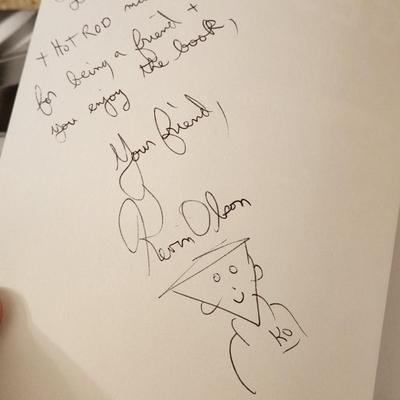 + HOT ROD
for being a friend +
you enjoy the book,
Your friend,
Kevin Olson
KO